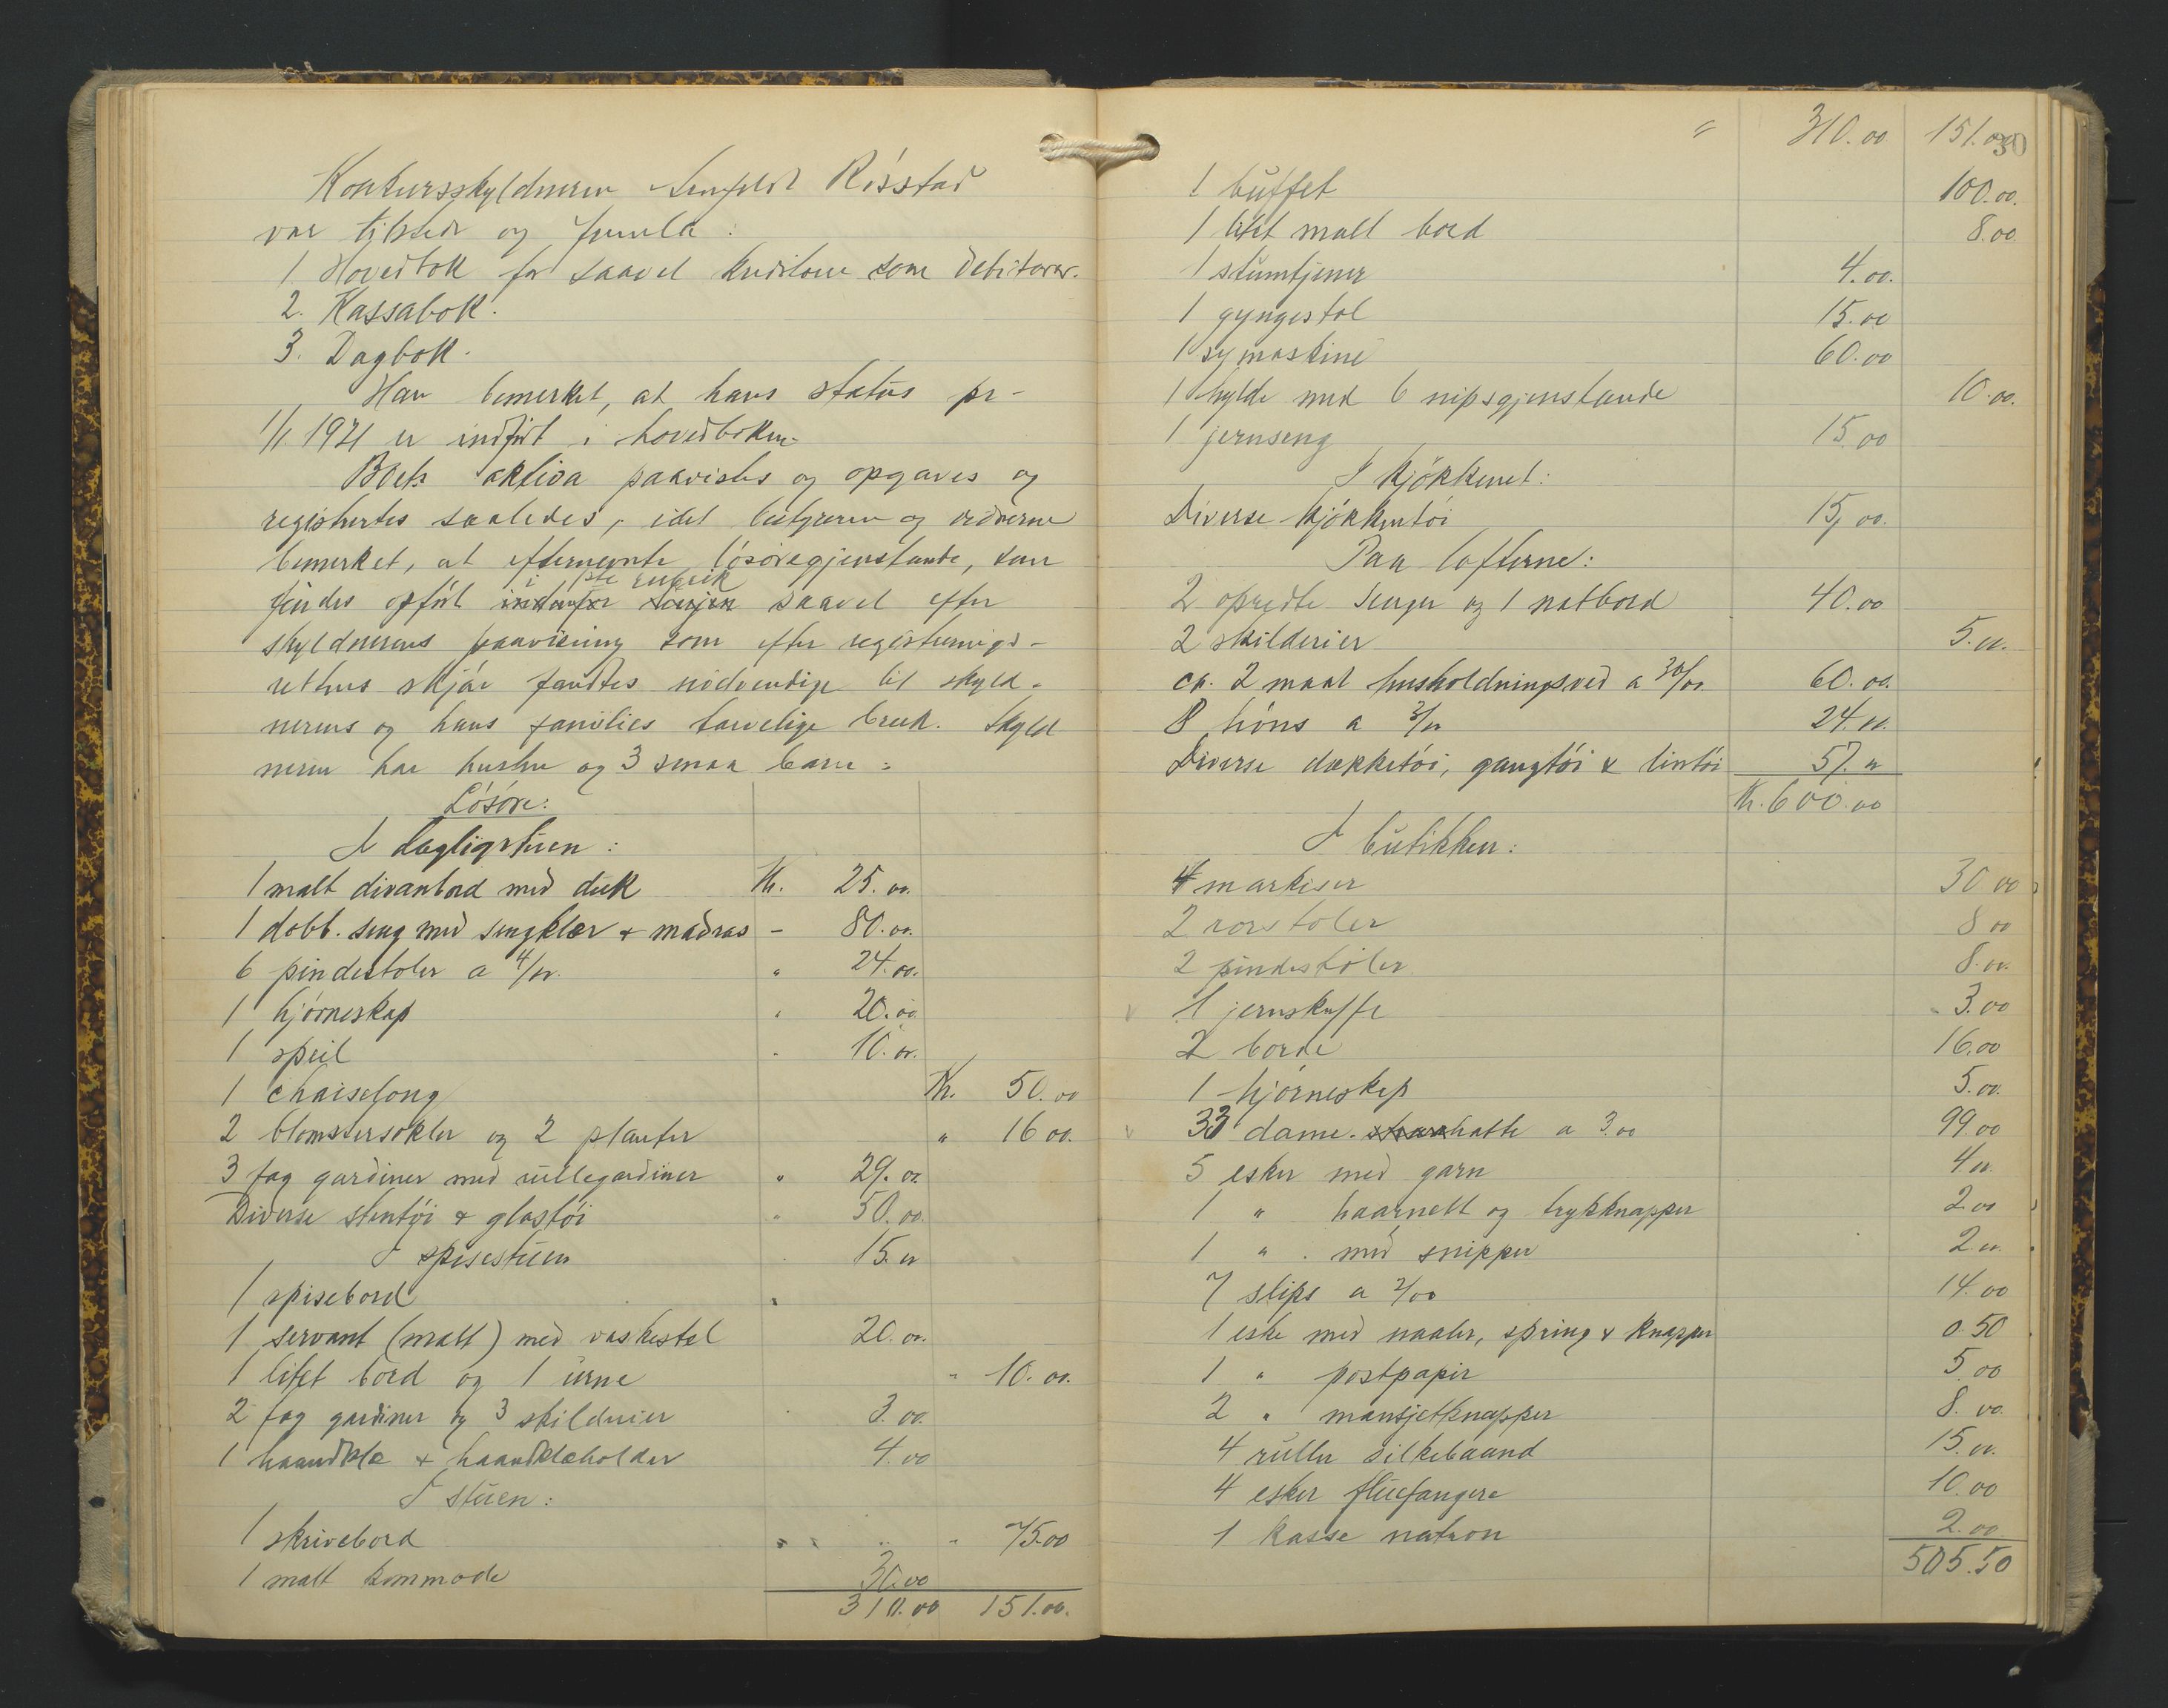 Konkursskyldneren Rösstad
var tilstede og fremla:
1 Hovedbok for saavel kreditorer som debitorer.
2. Kassabok.
3. Dagbok.
Han bemerket, at hans status pr-
1/1. 1921 er indført i hovedboken
Boets aktiva paavistes og opgaves og
registrertes saaledes, idet bestyreren og vidnerne
bemerket, at efternevnte lösöregjenstande, som
i 1ste rubrik
findes opfört indenfor linjen saavel efter
skyldnerens paavisning som efter registrerings-
rettens skjön fandtes nödvendige til skyld-
nerens og hans families tarvelige bruk. Skyld
neren har hustru og 3 smaa barn:
Lösöre:
I dagligstuen:
1 malt divanbord med duk Kr. 25.00
1 dobb. seng med sengklær + madras - 80.00
6 pindestoler a 4/00 " 24.00.
1 hjörneskap " 20.00
1 speil " 10.00.
1 chaiselong Kr. 50.00
2 blomstersokler og 2 planter " 16 00.
3 fag gardiner med rullegardiner " 29.00
Diverse stentöi + glastöi " 50.00
I spisestuen 15.00
1 spisebord "
1 servant (malt) med vaskestel 20.00.
1 litet bord og 1 urne " 10.00.
2 fag gardiner og 3 skilderier 3.00.
1 haandklæ + haandklæholder 4.00
I stuen:
1 skrivebord " 75.00
1 malt kommode 30.00
310.00 151.00.
" 310.00 151.00
30
1 buffet 100.00.
1 litet malt bord 8.00
1 stumtjener 4.00.
1 gyngestol 15.00
1 symaskine 60.00
1 hylde med 6 nipsgjenstande 10.00.
1 jernseng 15.00
I kjökkenet:
Diverse kjökkentöi 15,00.
Paa lofterne:
2 opredte senger og 1 natbord 40.00
2 skilderier 5.00.
ca. 2 maal husholdningsved a 30/00 60.00.
8 höns a 3/00 24.00.
Diverse dækketöi, gangtöi & lintöi 57.00
Kr. 600.00
I butikken:
4 markiser 30 00
2 rorstoler 8 00
2 pindestoler 8.00.
1 jernskuffe 3.00
2 borde 16.00
1 hjörneskap 5.00.
33 dame-straahatte a 3.00 99.00
5 esker med garn 4.00.
1 " haarnett og trykknapper 2.00
1 " med snipper 2.00.
7 slips a 2/00 14.00
1 eske med naaler, spring & knapper 0.50
1 " postpapir 5.00
2 " mansjetknapper 8.00
4 ruller silkebaand 15.00.
4 esker fluefangere 10.00
1 kasse natron 2.00.
505.50